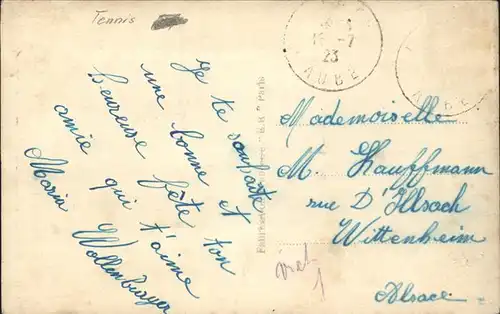 Tennis
Je te souhaite
une bonne et
heureuse fête ton
amie qui t'aime
Maria Wollenburger
Mademoiselle
M. Kauffmann
rue D'Illsach
Wittenheim
Alsace
15 -7
23
AUBE
AUBE
1
Paris